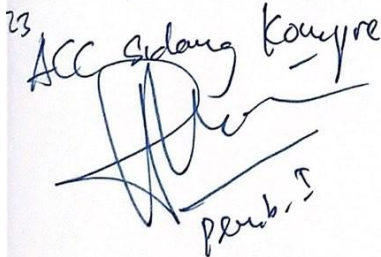 23
ACC Sidang Kompre
pemb. I